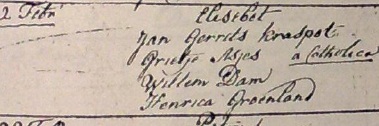 2 Febr Elisebet
Jan Gerrits Kraspot
Grietje Asjes a Catholica
Willem Dam
Henrica Groenland